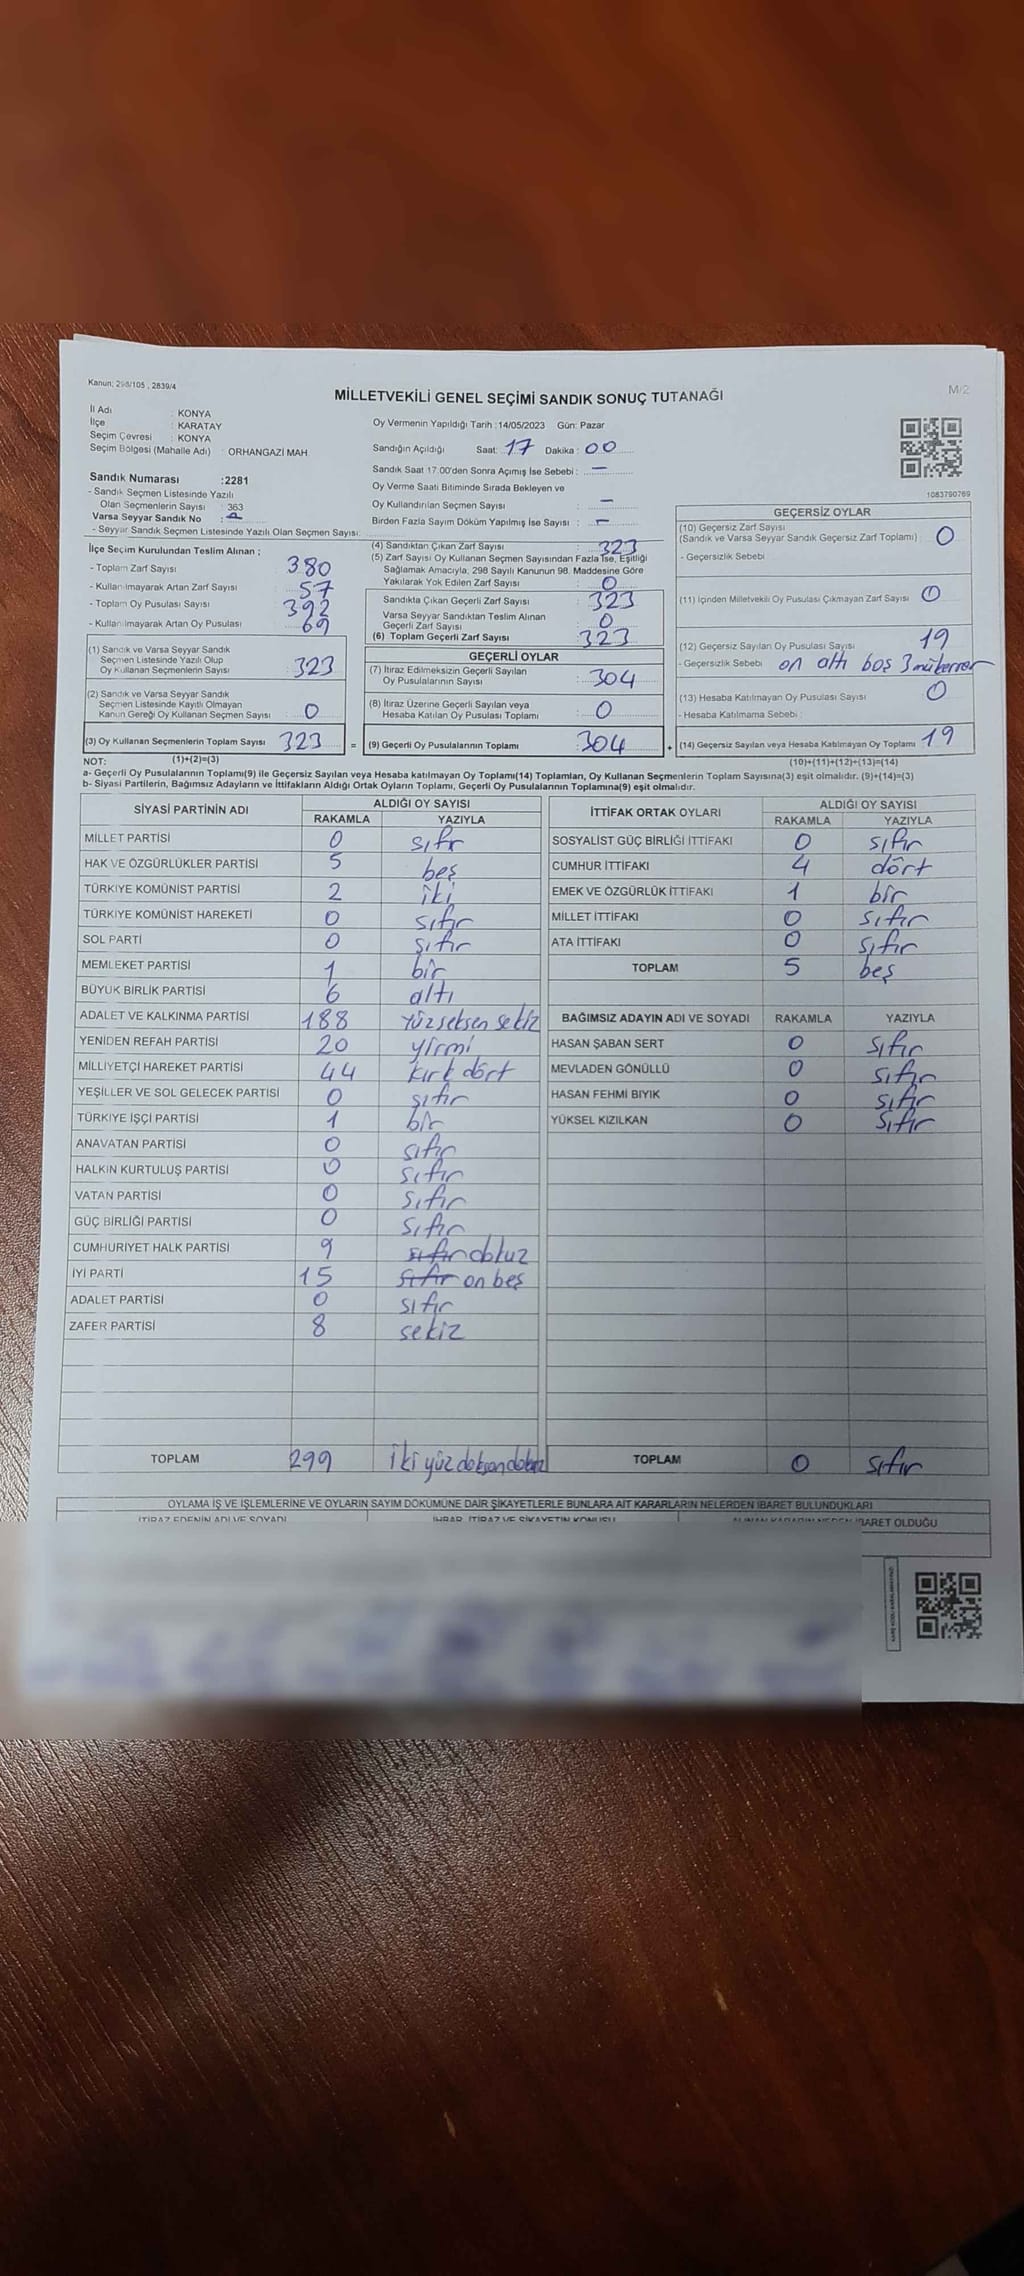 Kanun; 298/105 , 2839/4
MİLLETVEKİLİ GENEL SEÇİMİ SANDIK SONUÇ TUTANAĞI
M/2
İl Adı : KONYA
İlçe : KARATAY
Seçim Çevresi : KONYA
Seçim Bölgesi (Mahalle Adı) : ORHANGAZİ MAH.
Sandık Numarası :2281
- Sandık Seçmen Listesinde Yazılı
Olan Seçmenlerin Sayısı : 363
Varsa Seyyar Sandık No :
- Seyyar Sandık Seçmen Listesinde Yazılı Olan Seçmen Sayısı:
Oy Vermenin Yapıldığı Tarih :14/05/2023 Gün: Pazar
Sandığın Açıldığı Saat: 17 Dakika : 00
Sandık Saat 17.00'den Sonra Açımış İse Sebebi : —
Oy Verme Saati Bitiminde Sırada Bekleyen ve
Oy Kullandırılan Seçmen Sayısı : —
Birden Fazla Sayım Döküm Yapılmış İse Sayısı : —
1083790769
İlçe Seçim Kurulundan Teslim Alınan ;
- Toplam Zarf Sayısı : 380
- Kullanılmayarak Artan Zarf Sayısı : 57
- Toplam Oy Pusulası Sayısı : 392
- Kullanılmayarak Artan Oy Pusulası : 69
(1) Sandık ve Varsa Seyyar Sandık
Seçmen Listesinde Yazılı Olup
Oy Kullanan Seçmenlerin Sayısı : 323
(2) Sandık ve Varsa Seyyar Sandık
Seçmen Listesinde Kayıtlı Olmayan
Kanun Gereği Oy Kullanan Seçmen Sayısı : 0
(3) Oy Kullanan Seçmenlerin Toplam Sayısı : 323 =
(4) Sandıktan Çıkan Zarf Sayısı : 323
(5) Zarf Sayısı Oy Kullanan Seçmen Sayısından Fazla İse, Eşitliği
Sağlamak Amacıyla, 298 Sayılı Kanunun 98. Maddesine Göre
Yakılarak Yok Edilen Zarf Sayısı : 0
Sandıkta Çıkan Geçerli Zarf Sayısı : 323
Varsa Seyyar Sandıktan Teslim Alınan
Geçerli Zarf Sayısı : 0
(6) Toplam Geçerli Zarf Sayısı : 323
GEÇERLİ OYLAR
(7) İtiraz Edilmeksizin Geçerli Sayılan
Oy Pusulalarının Sayısı : 304
(8) İtiraz Üzerine Geçerli Sayılan veya
Hesaba Katılan Oy Pusulası Toplamı : 0
(9) Geçerli Oy Pusulalarının Toplamı : 304 +
GEÇERSİZ OYLAR
(10) Geçersiz Zarf Sayısı
(Sandık ve Varsa Seyyar Sandık Geçersiz Zarf Toplamı) : 0
- Geçersizlik Sebebi
(11) İçinden Milletvekili Oy Pusulası Çıkmayan Zarf Sayısı : 0
(12) Geçersiz Sayılan Oy Pusulası Sayısı : 19
- Geçersizlik Sebebi : on altı boş 3 mükerrer
(13) Hesaba Katılmayan Oy Pusulası Sayısı : 0
- Hesaba Katılmama Sebebi :
(14) Geçersiz Sayılan veya Hesaba Katılmayan Oy Toplamı : 19
NOT: (1)+(2)=(3) (10)+(11)+(12)+(13)=(14)
a- Geçerli Oy Pusulalarının Toplamı(9) ile Geçersiz Sayılan veya Hesaba katılmayan Oy Toplamı(14) Toplamları, Oy Kullanan Seçmenlerin Toplam Sayısına(3) eşit olmalıdır. (9)+(14)=(3)
b- Siyasi Partilerin, Bağımsız Adayların ve İttifakların Aldığı Ortak Oyların Toplamı, Geçerli Oy Pusulalarının Toplamına(9) eşit olmalıdır.
SİYASİ PARTİNİN ADI ALDIĞI OY SAYISI
RAKAMLA YAZIYLA
MİLLET PARTİSİ 0 sıfır
HAK VE ÖZGÜRLÜKLER PARTİSİ 5 beş
TÜRKİYE KOMÜNİST PARTİSİ 2 iki
TÜRKİYE KOMÜNİST HAREKETİ 0 sıfır
SOL PARTİ 0 sıfır
MEMLEKET PARTİSİ 1 bir
BÜYÜK BİRLİK PARTİSİ 6 altı
ADALET VE KALKINMA PARTİSİ 188 Yüzseksen sekiz
YENİDEN REFAH PARTİSİ 20 yirmi
MİLLİYETÇİ HAREKET PARTİSİ 44 kırk dört
YEŞİLLER VE SOL GELECEK PARTİSİ 0 sıfır
TÜRKİYE İŞÇİ PARTİSİ 1 bir
ANAVATAN PARTİSİ 0 sıfır
HALKIN KURTULUŞ PARTİSİ 0 sıfır
VATAN PARTİSİ 0 sıfır
GÜÇ BİRLİĞİ PARTİSİ 0 sıfır
CUMHURİYET HALK PARTİSİ 9 sıfır dokuz
İYİ PARTİ 15 sıfır on beş
ADALET PARTİSİ 0 sıfır
ZAFER PARTİSİ 8 sekiz
TOPLAM 299 iki yüz doksan dokuz
İTTİFAK ORTAK OYLARI ALDIĞI OY SAYISI
RAKAMLA YAZIYLA
SOSYALİST GÜÇ BİRLİĞİ İTTİFAKI 0 sıfır
CUMHUR İTTİFAKI 4 dört
EMEK VE ÖZGÜRLÜK İTTİFAKI 1 bir
MİLLET İTTİFAKI 0 sıfır
ATA İTTİFAKI 0 sıfır
TOPLAM 5 beş
BAĞIMSIZ ADAYIN ADI VE SOYADI RAKAMLA YAZIYLA
HASAN ŞABAN SERT 0 sıfır
MEVLADEN GÖNÜLLÜ 0 sıfır
HASAN FEHMİ BIYIK 0 sıfır
YÜKSEL KIZILKAN 0 sıfır
TOPLAM 0 sıfır
OYLAMA İŞ VE İŞLEMLERİNE VE OYLARIN SAYIM DÖKÜMÜNE DAİR ŞİKAYETLERLE BUNLARA AİT KARARLARIN NELERDEN İBARET BULUNDUKLARI
İTİRAZ EDENİN ADI VE SOYADI İHBAR, İTİRAZ VE ŞİKAYETİN KONUSU ALINAN KARARIN NEDEN İBARET OLDUĞU